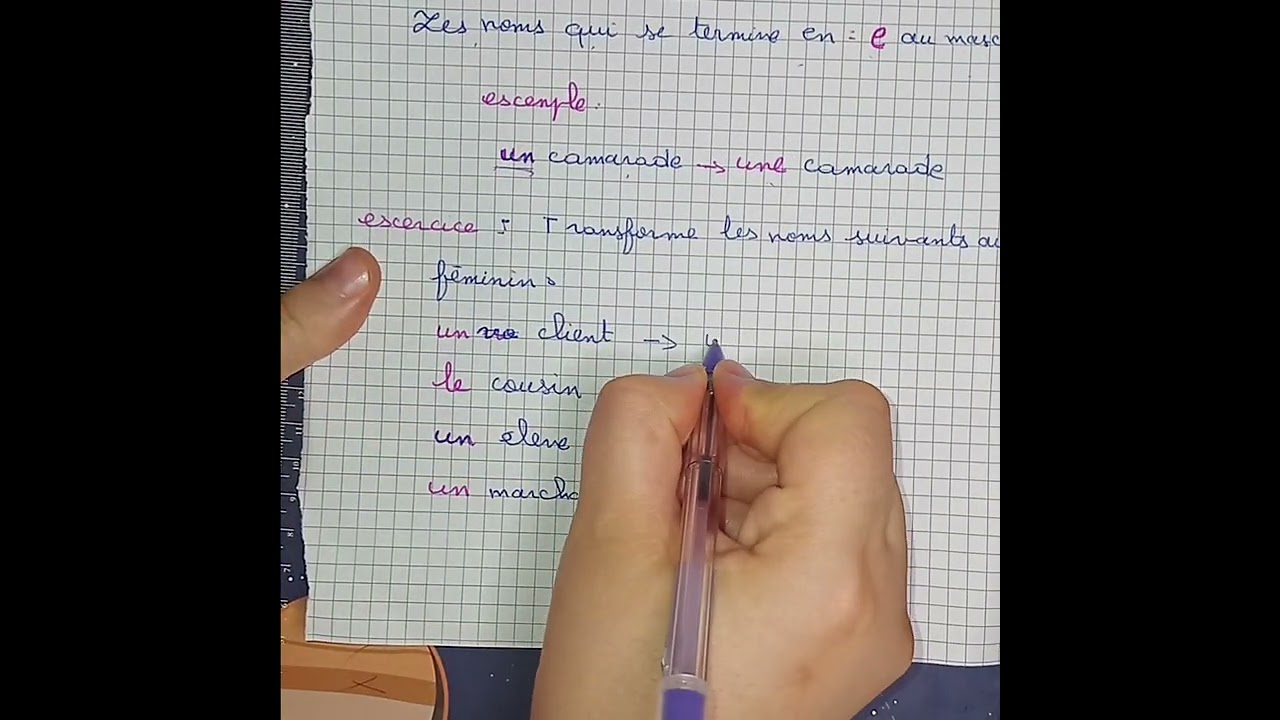 Les noms qui se termine en : e au masc
escemple.
un camarade → une camarade
escercice : Transforme les noms suivants au
féminin.
un client →
le cousin
un élève
un marcha